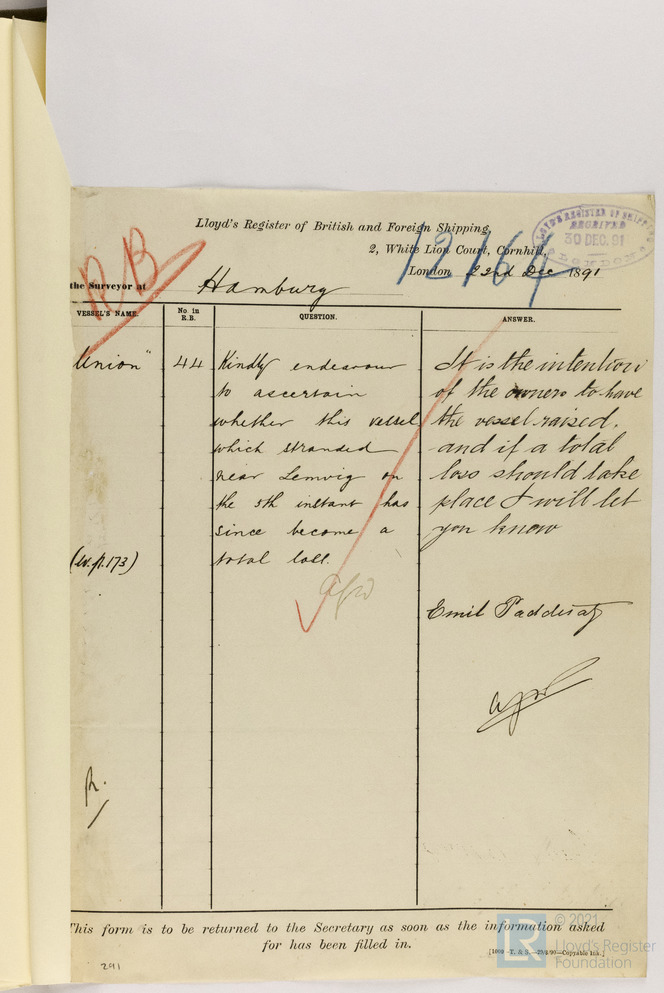 Lloyd's Register of British and Foreign Shipping,
2, White Lion Court, Cornhill,
London 22nd Dec 1891
12164
LLOYD'S REGISTER OF SHIPPING
RECEIVED
30 DEC. 91
LONDON
RB
the Surveyor at Hamburg
VESSEL'S NAME.
No in R.B.
QUESTION.
ANSWER.
Union"
44
Kindly endeavour
to ascertain
whether this vessel
which stranded
near Lemvig on
the 5th instant has
since become a
total loss.
(sv. p. 173)
It is the intention
of the owners to have
the vessel raised.
and if a total
loss should take
place I will let
you know
Emil Padderatz
This form is to be returned to the Secretary as soon as the information asked
for has been filled in.
[1000 -T. & S.—29/4/90—Copyable Ink.]
291
LR
© 2021
Lloyd's Register
Foundation